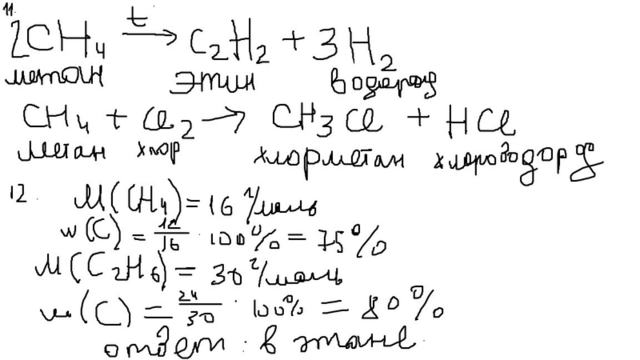 11.
2CH₄ t→ C₂H₂ + 3H₂
метан этин водород
CH₄ + Cl₂ → CH₃Cl + HCl
метан хлор хлорметан хлороводород
12. M(CH₄) = 16 г/моль
w(C) = 12/16 · 100% = 75%
M(C₂H₆) = 30 г/моль
w(C) = 24/30 · 100% = 80%
ответ: в этане